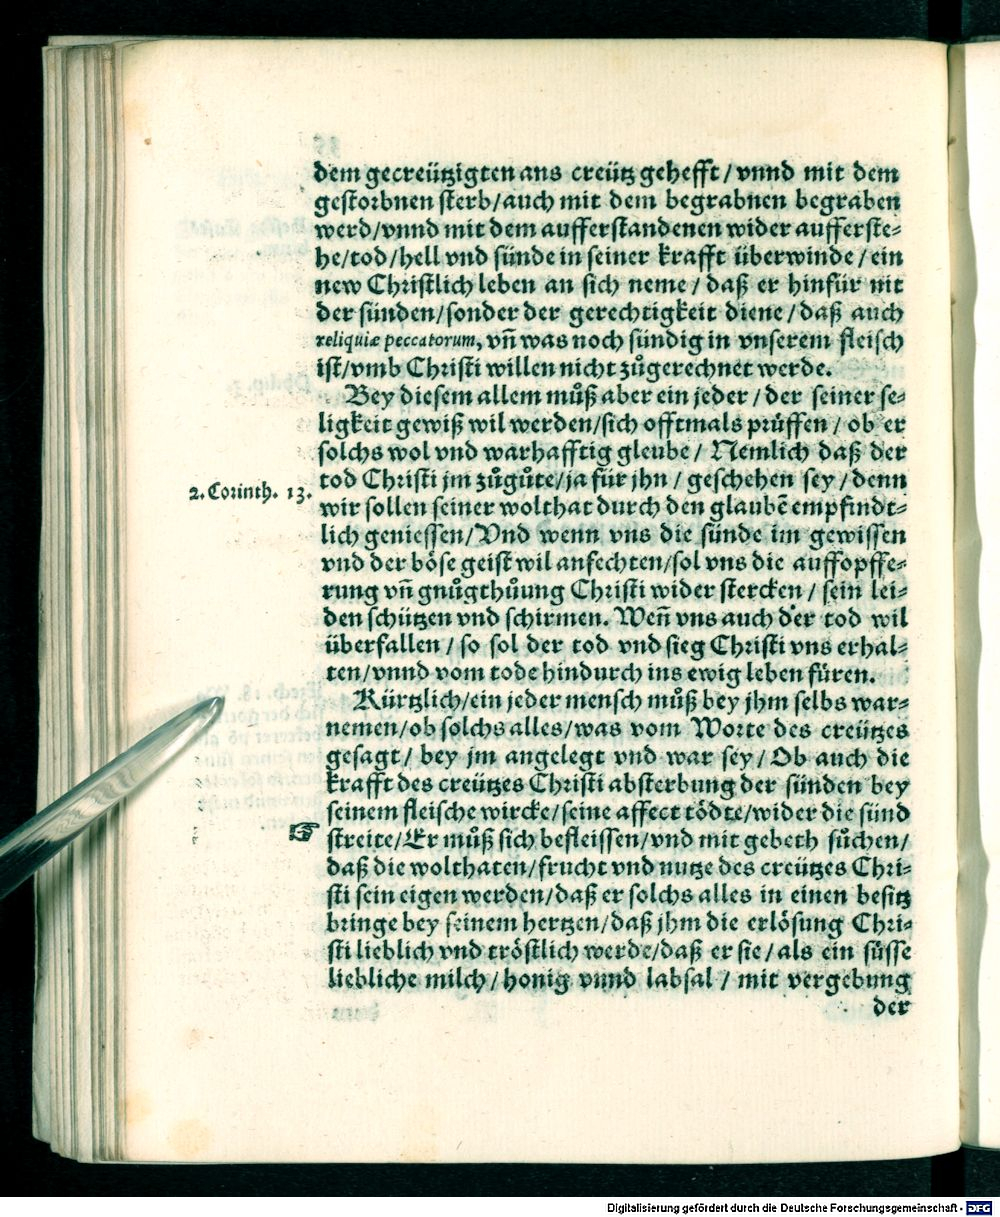 dem gecreützigten ans creütz gehefft / vnnd mit dem
gestorbnen sterb/auch mit dem begrabnen begraben
werd/vnnd mit dem aufferstandenen wider aufferste-
he/tod/hell vnd sünde in seiner krafft überwinde / ein
new Christlich leben an sich neme / daß er hinfür nit
der sünden/sonder der gerechtigkeit diene / daß auch
reliquiæ peccatorum, vñ was noch sündig in vnserem fleisch
ist/vmb Christi willen nicht zůgerechnet werde.
Bey diesem allem můß aber ein jeder / der seiner se-
ligkeit gewiß wil werden/sich offtmals prüffen / ob er
solchs wol vnd warhafftig gleube / Nemlich daß der
2. Corinth. 13. tod Christi jm zůgůte/ja für jhn / geschehen sey / denn
wir sollen seiner wolthat durch den glaubẽ empfindt-
lich geniessen/Vnd wenn vns die sünde im gewissen
vnd der böse geist wil anfechten/sol vns die auffopffe-
rung vñ gnůgthůung Christi wider stercken / sein lei-
den schützen vnd schirmen. Weñ vns auch der tod wil
überfallen / so sol der tod vnd sieg Christi vns erhal-
ten/vnnd vom tode hindurch ins ewig leben füren.
Kürtzlich/ein jeder mensch můß bey jhm selbs war-
nemen/ob solchs alles/was vom Worte des creützes
gesagt / bey jm angelegt vnd war sey / Ob auch die
krafft des creützes Christi absterbung der sünden bey
seinem fleische wircke/seine affect tödte/wider die sünd
☞ streite/Er můß sich befleissen/vnd mit gebeth sůchen/
daß die wolthaten/frucht vnd nutze des creützes Chri-
sti sein eigen werden/daß er solchs alles in einen besitz
bringe bey seinem hertzen/daß jhm die erlösung Chri-
sti lieblich vnd tröstlich werde/daß er sie / als ein süsse
liebliche milch / honig vnnd labsal / mit vergebung
der
Digitalisierung gefördert durch die Deutsche Forschungsgemeinschaft - DFG